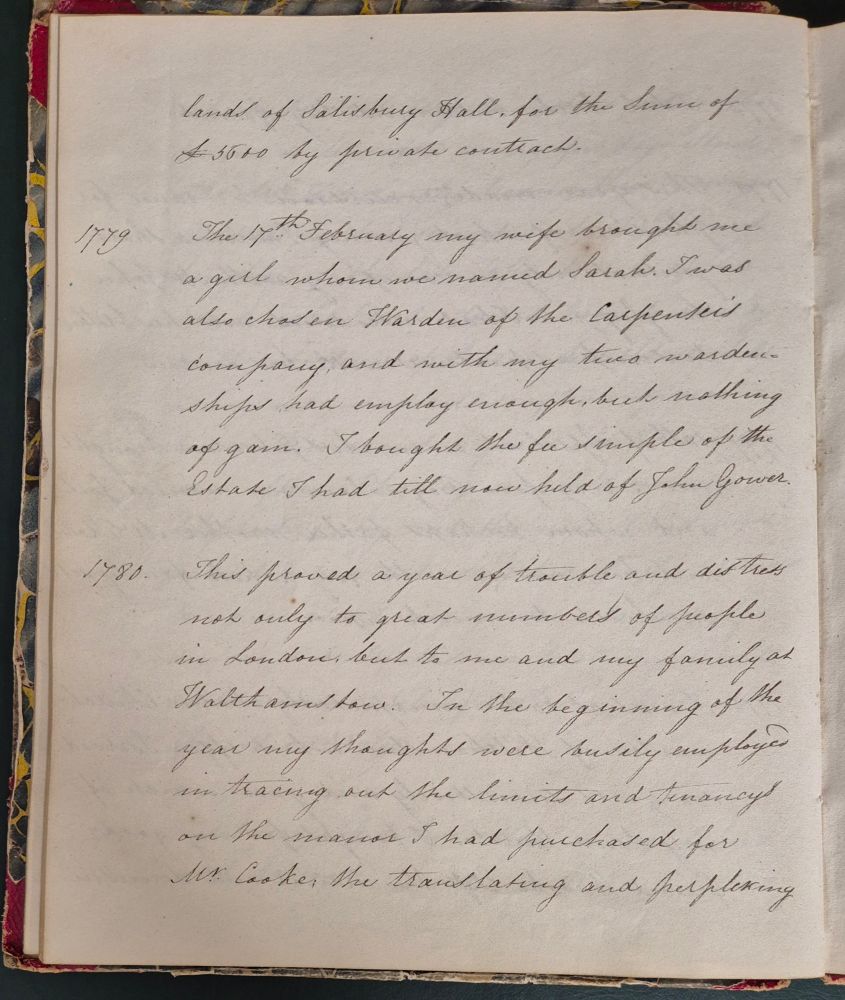 lands of Salisbury Hall, for the Sum of
£5500 by private contract.
1779 The 17th. February my wife brought me
a girl whom we named Sarah. I was
also chosen Warden of the Carpenters
company, and with my two warden=
ships had employ enough, but nothing
of gain. I bought the fee simple of the
Estate I had till now held of John Gower.
1780. This proved a year of trouble and distress
not only to great numbers of people
in London, but to me and my family at
Walthamstow. In the beginning of the
year my thoughts were busily employed
in tracing out the limits and tenancys
on the manor I had purchased for
Mr. Cooke; the translating and perplexing